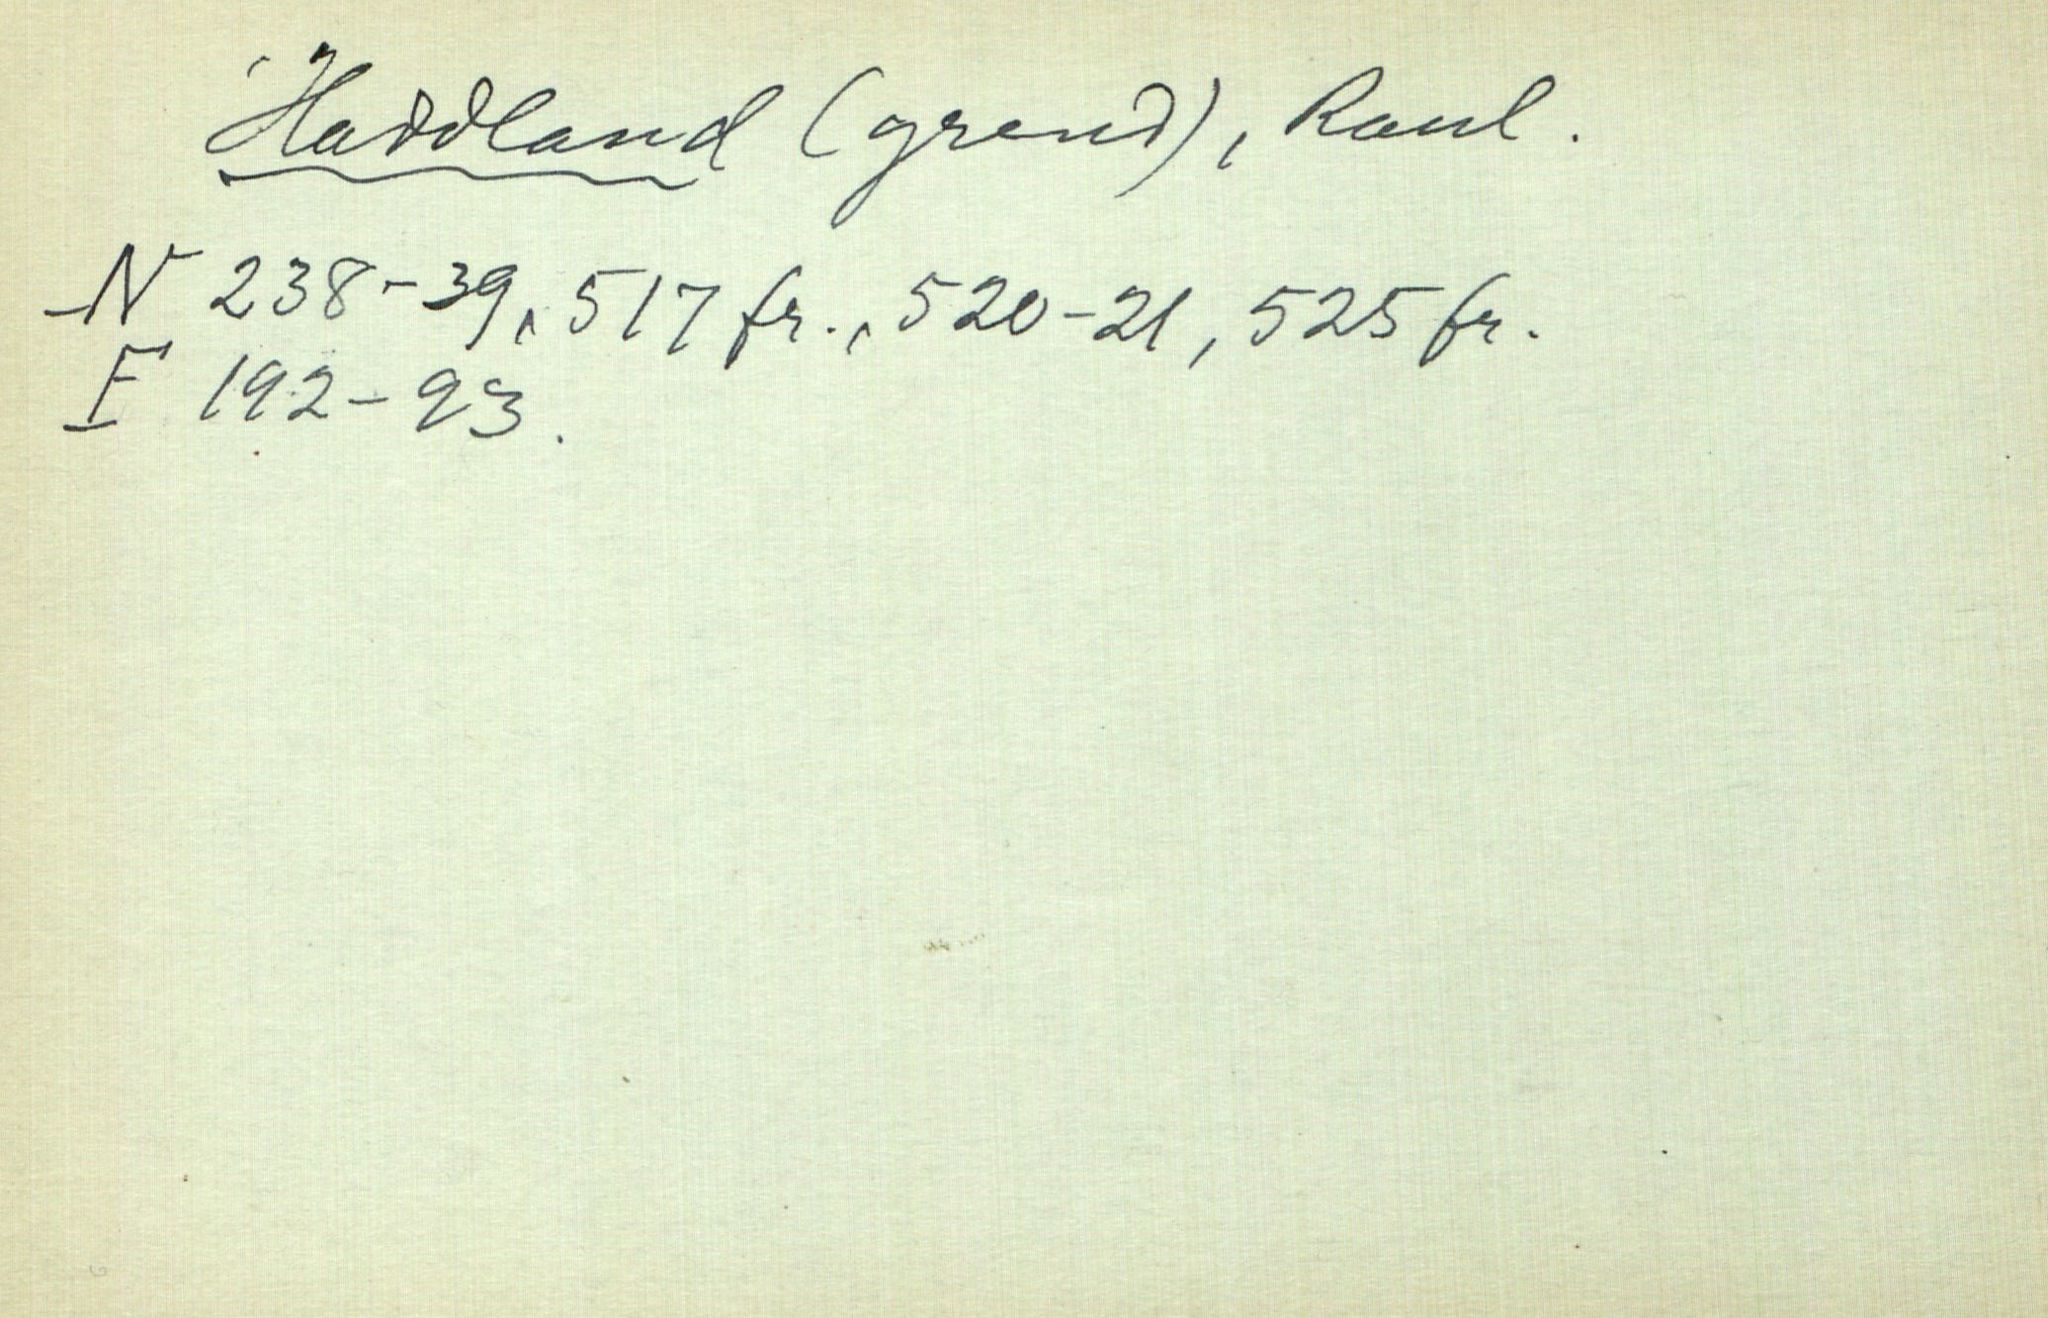 Haddland (grend), Raul.
N 238-39, 517 fr., 520-21, 525 fr.
F 192-93.